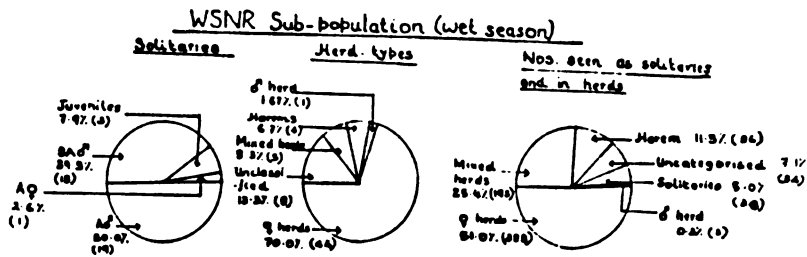 WSNR Sub-population (wet season)
Solitaries
Juveniles
7.9% (3)
SA♂
39.5%
(15)
A♀
2.6%
(1)
A♂
50.0%
(19)
Herd-types
♂ herd
1.67% (1)
Harems
6.7% (4)
Mixed herds
8.3% (5)
Unclassi
-fied
13.3% (8)
♀ herds
70.0% (42)
Nos. seen as solitaries
and in herds
Harem 11.3% (86)
Uncategorised 7.1%
(54)
Solitaries 5.0%
(38)
♂ herd
Mixed
herds
♀ herds